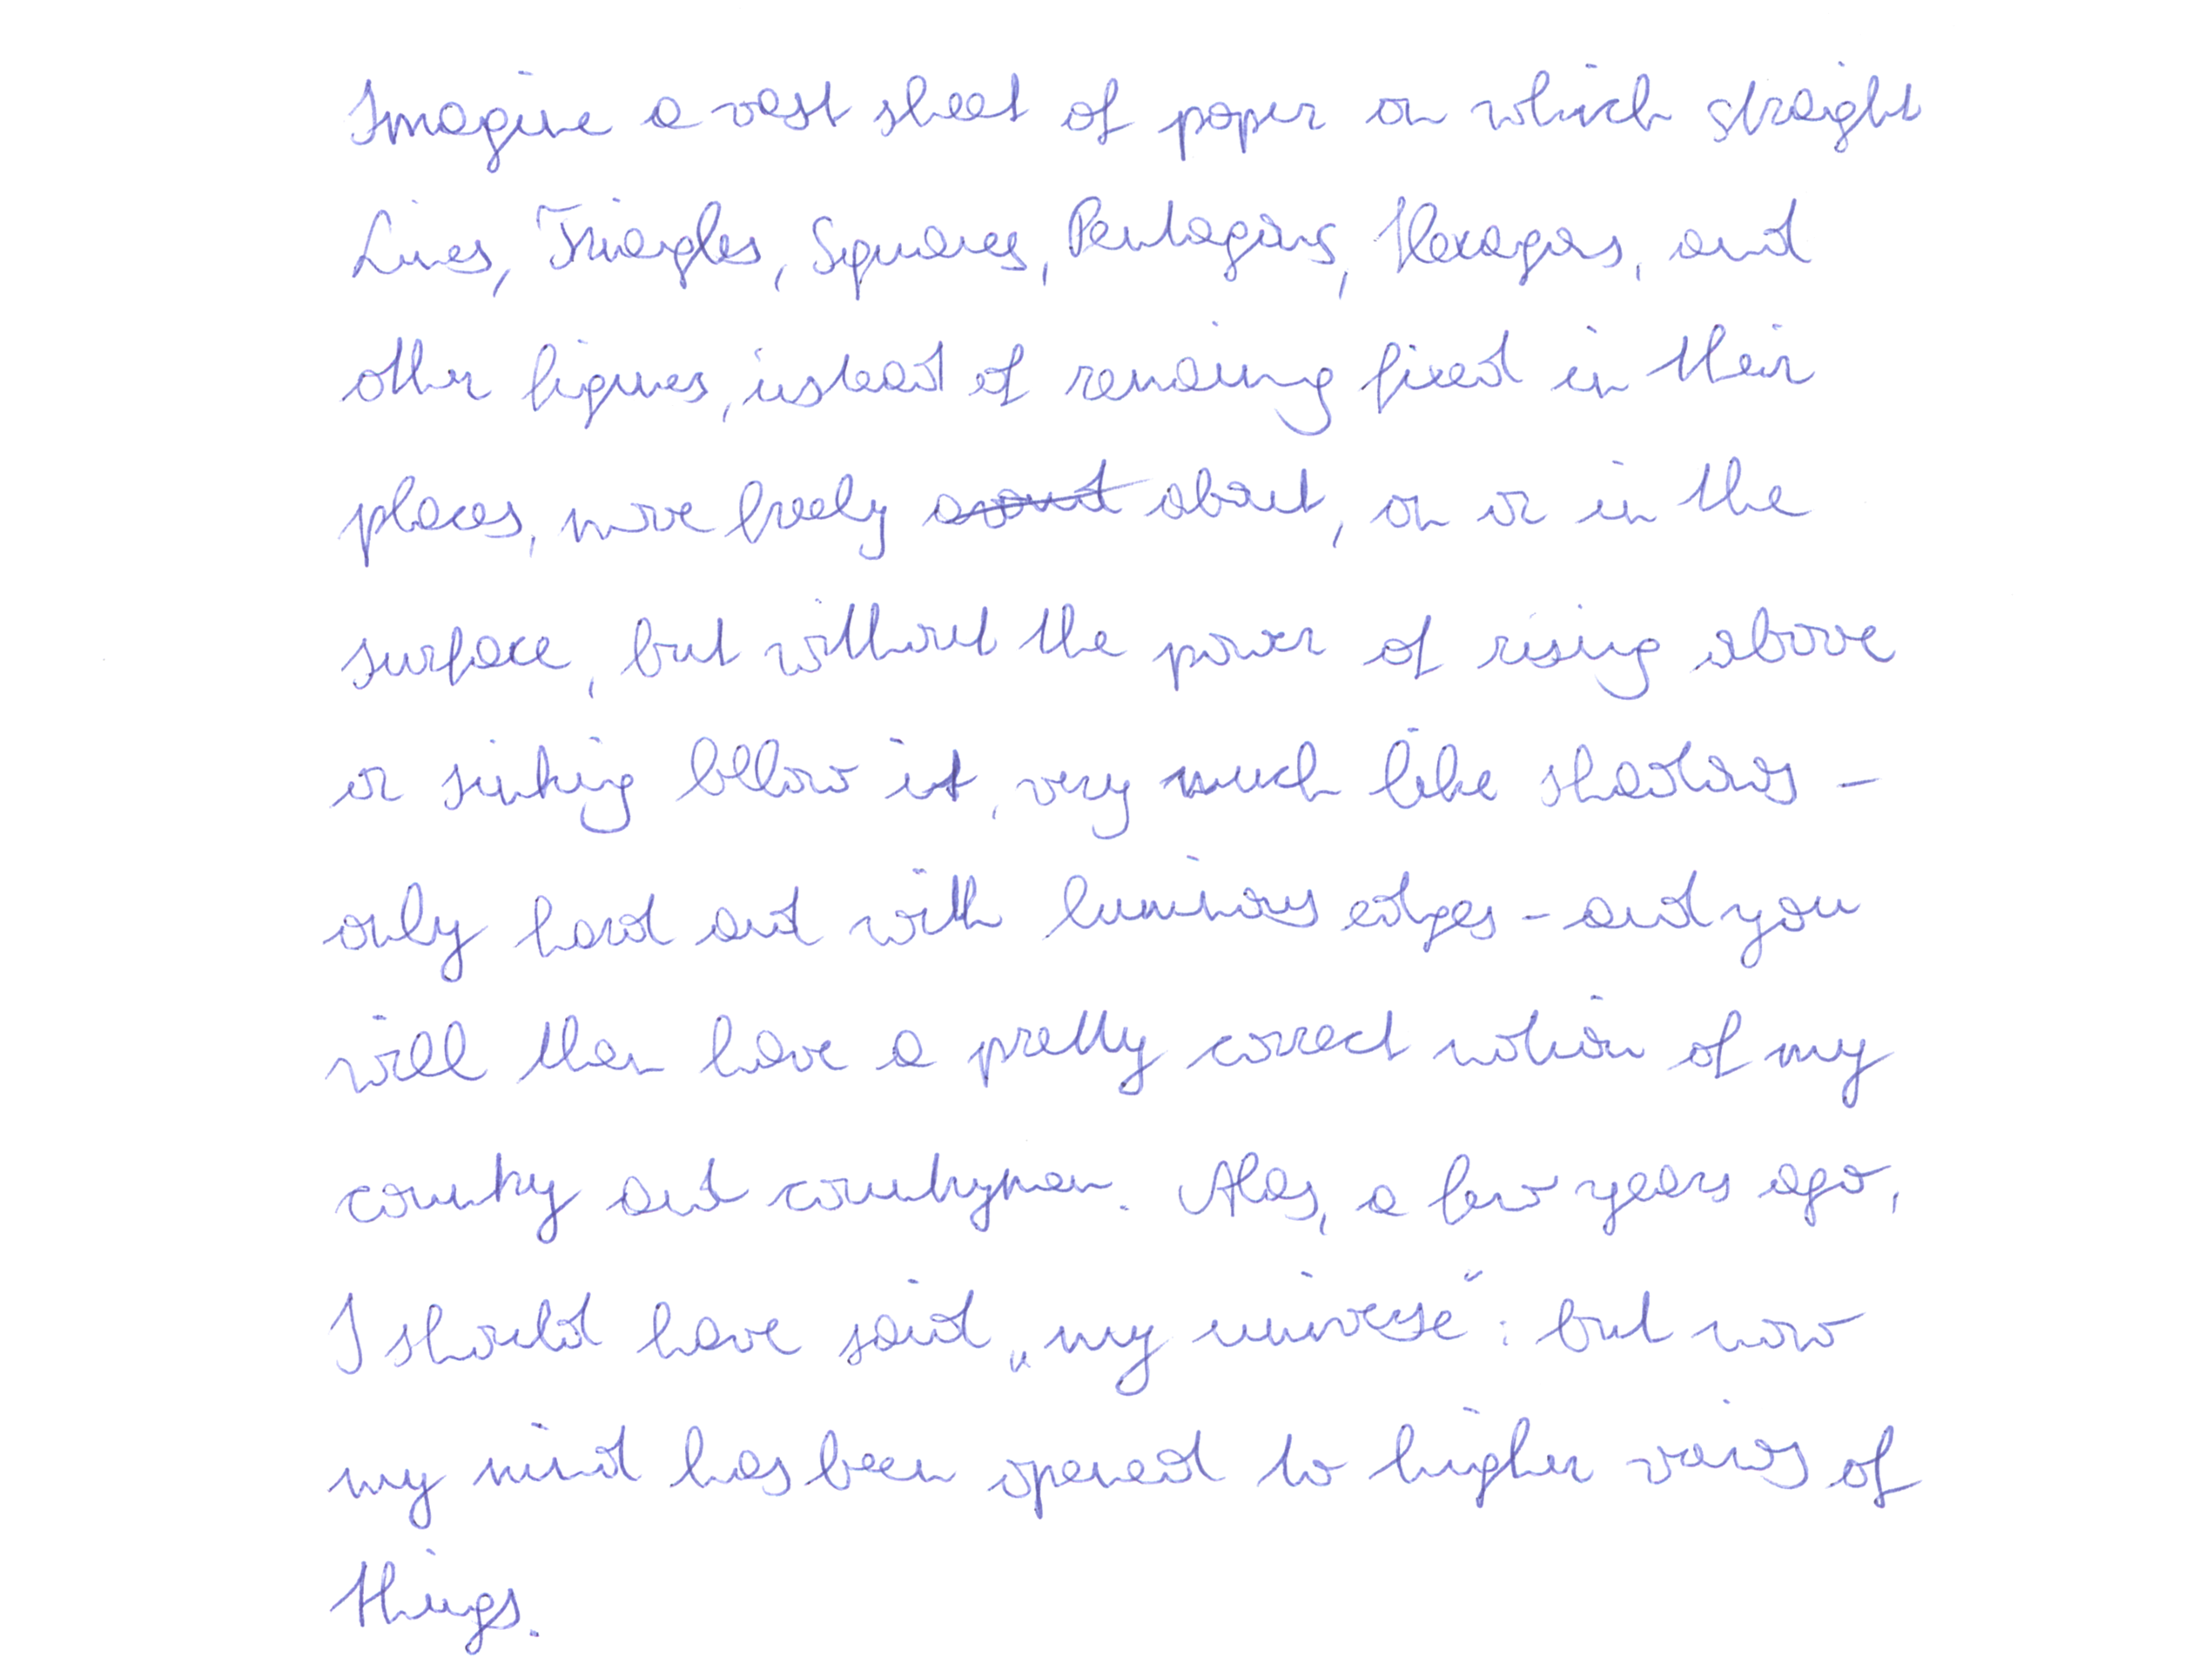 Imagine a vast sheet of paper on which straight
Lines, Triangles, Squares, Pentagons, Hexagons, and
other figures, instead of remaining fixed in their
places, move freely around about, on or in the
surface, but without the power of rising above
or sinking bellow it, very much like shadows -
only hard and with luminous edges - and you
will then have a pretty correct notion of my
country and countrymen. Alas, a few years ago,
I should have said „my universe“: but now
my mind has been opened to higher views of
things.